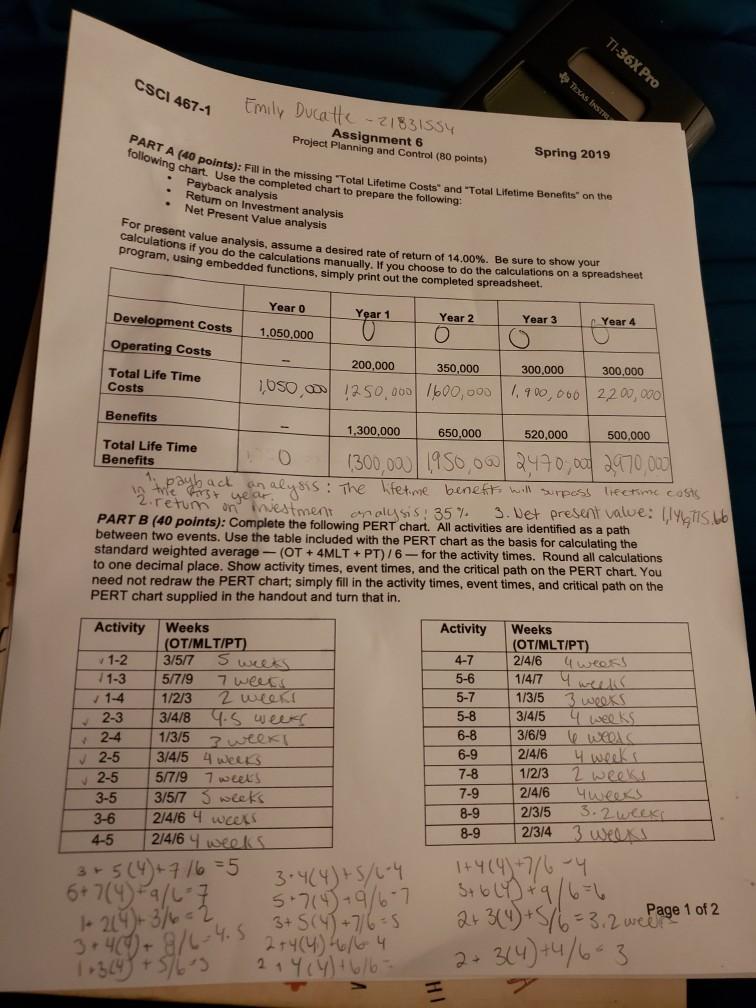 TI-36X Pro
TEXAS INSTRU
CSCI 467-1
Emily Ducatte - 21831554
Assignment 6
Project Planning and Control (80 points)
Spring 2019
PART A (40 points): Fill in the missing "Total Lifetime Costs" and "Total Lifetime Benefits" on the
following chart. Use the completed chart to prepare the following:
• Payback analysis
• Return on Investment analysis
• Net Present Value analysis
For present value analysis, assume a desired rate of return of 14.00%. Be sure to show your
calculations if you do the calculations manually. If you choose to do the calculations on a spreadsheet
program, using embedded functions, simply print out the completed spreadsheet.
Year 0 Year 1 Year 2 Year 3 Year 4
Development Costs 1,050,000 0 0 0 0
Operating Costs – 200,000 350,000 300,000 300,000
Total Life Time
Costs 1,050,000 1250,000 1,600,000 1,900,000 2,200,000
Benefits – 1,300,000 650,000 520,000 500,000
Total Life Time
Benefits 0 1,300,000 1,950,000 2,470,000 2,970,000
1. payback analysis: The lifetime benefits will surpass lifetime costs
in the first year.
2. return on investment analysis: 35% 3. Net present value: 1,146,775.66
PART B (40 points): Complete the following PERT chart. All activities are identified as a path
between two events. Use the table included with the PERT chart as the basis for calculating the
standard weighted average — (OT + 4MLT + PT) / 6 — for the activity times. Round all calculations
to one decimal place. Show activity times, event times, and the critical path on the PERT chart. You
need not redraw the PERT chart; simply fill in the activity times, event times, and critical path on the
PERT chart supplied in the handout and turn that in.
Activity Weeks
(OT/MLT/PT)
✓ 1-2 3/5/7 5 weeks
✓ 1-3 5/7/9 7 weeks
✓ 1-4 1/2/3 2 weeks
✓ 2-3 3/4/8 4.5 weeks
✓ 2-4 1/3/5 3 weeks
✓ 2-5 3/4/5 4 weeks
✓ 2-5 5/7/9 7 weeks
3-5 3/5/7 5 weeks
3-6 2/4/6 4 weeks
4-5 2/4/6 4 weeks
Activity Weeks
(OT/MLT/PT)
4-7 2/4/6 4 weeks
5-6 1/4/7 4 weeks
5-7 1/3/5 3 weeks
5-8 3/4/5 4 weeks
6-8 3/6/9 6 weeks
6-9 2/4/6 4 weeks
7-8 1/2/3 2 weeks
7-9 2/4/6 4 weeks
8-9 2/3/5 3.2 weeks
8-9 2/3/4 3 weeks
3 + 5(4)+7/6 =5
5+7(4)+9/6=7
1+2(4)+3/6=2
3+4(4)+8/6=4.5
1+3(4)+5/6=3
3+4(4)+5/6=4
5+7(4)+9/6=7
3+5(4)+7/6=5
2+4(4)+6/6=4
2+4(4)+6/6=
1+4(4)+7/6=4
3+6(4)+9/6=6
2+3(4)+5/6=3.2 weeks
2+3(4)+4/6=3
Page 1 of 2